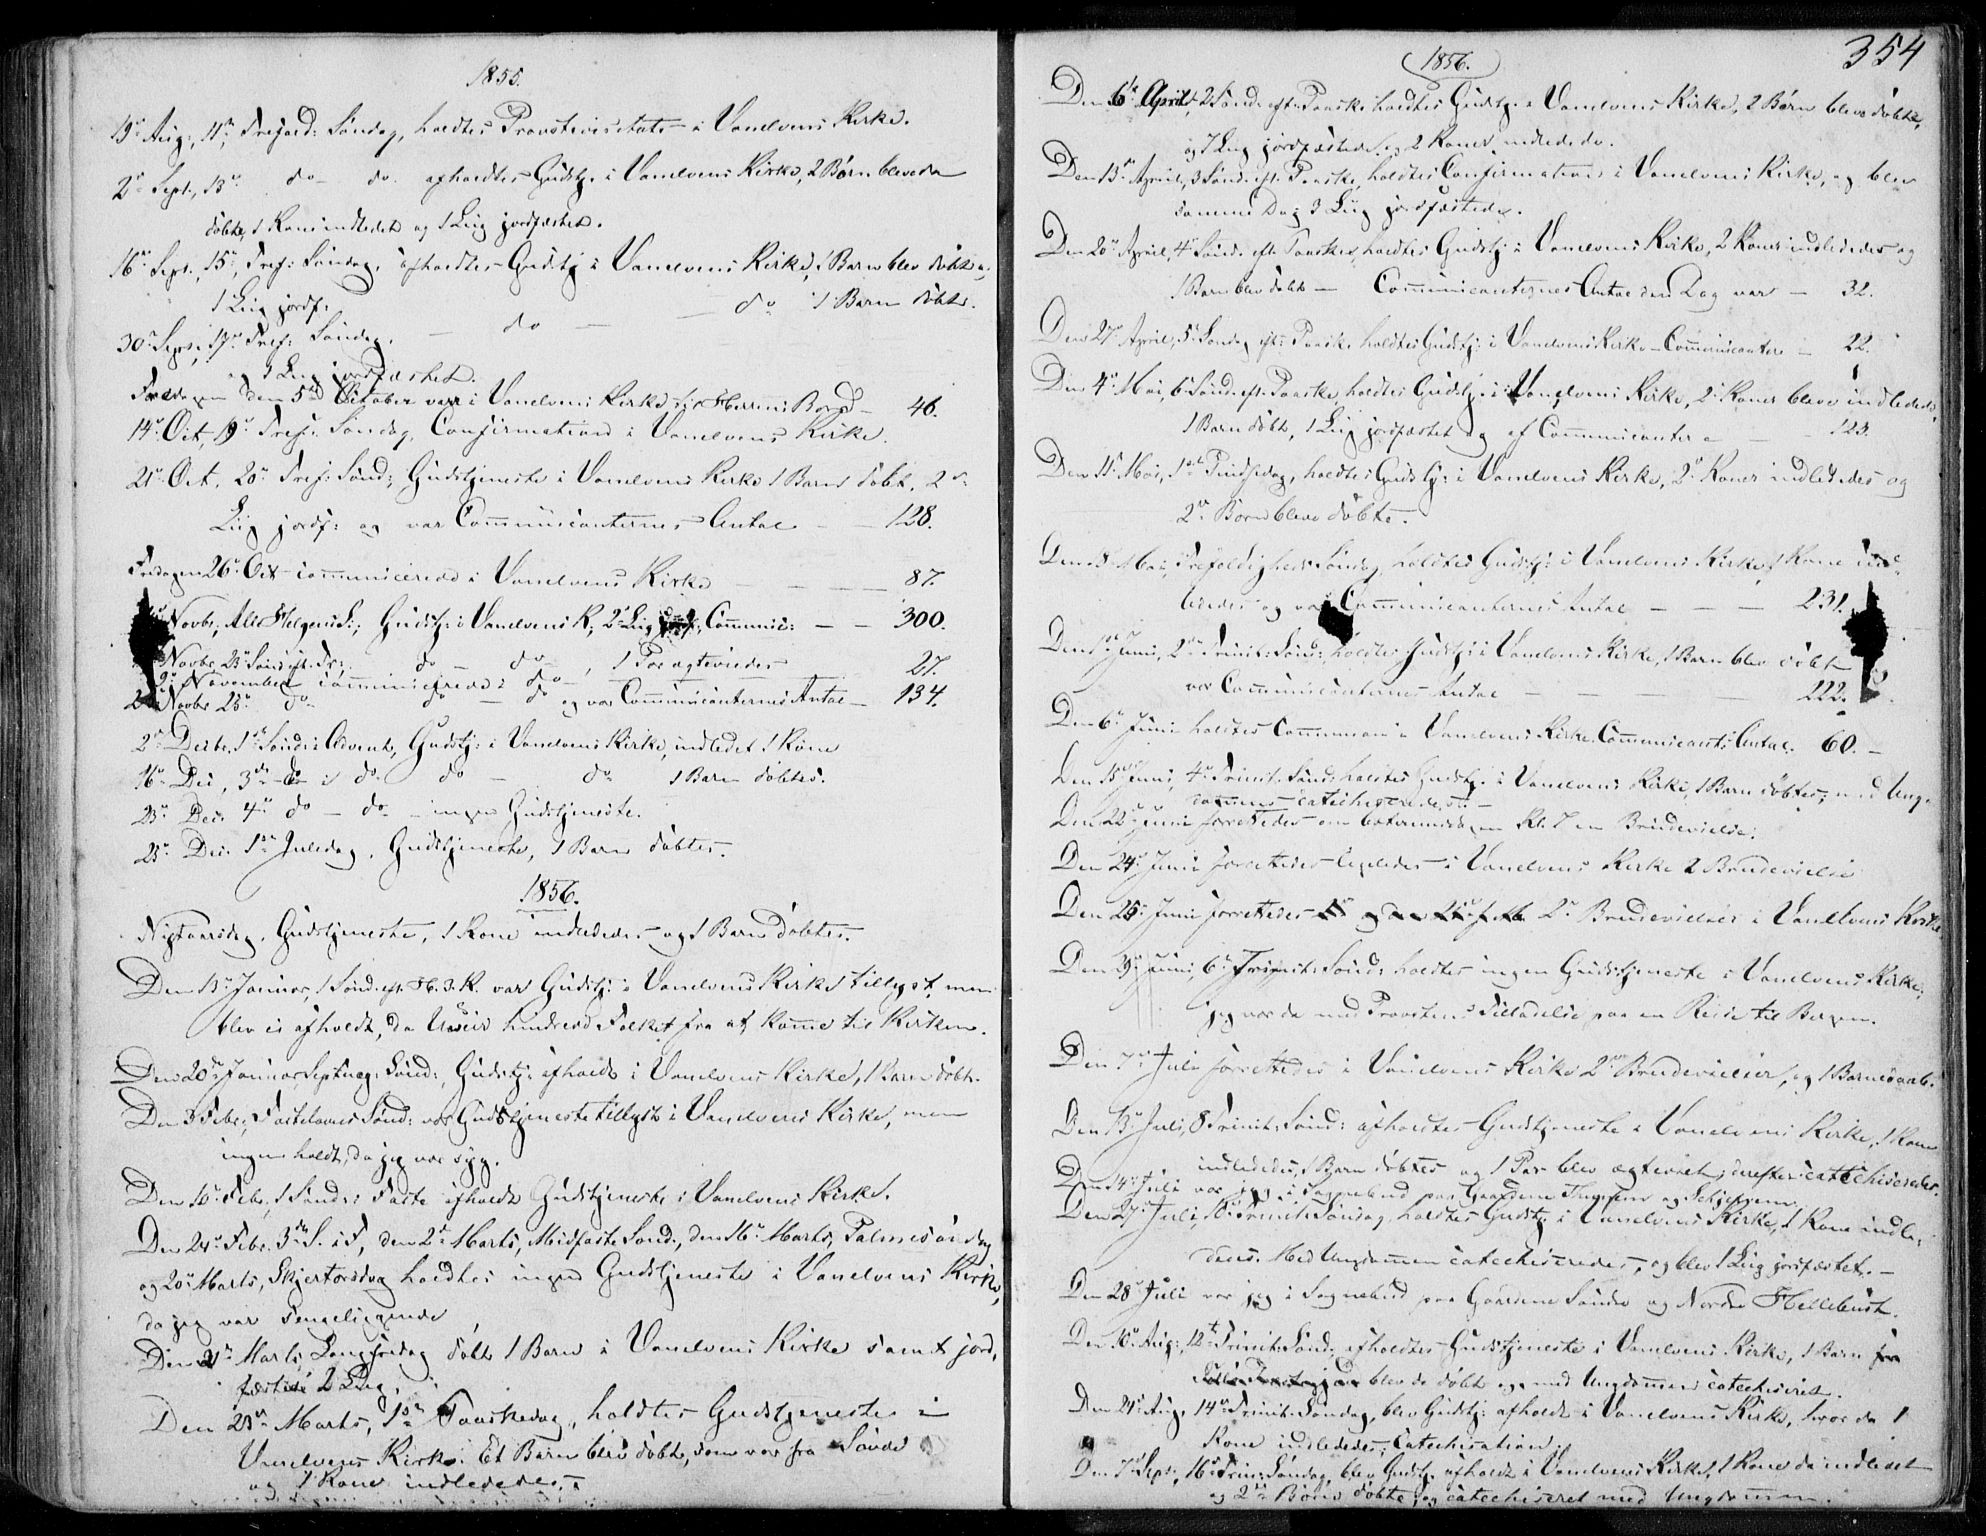 1855.
19de Aug:, 11te Trefold: Søndag, holdtes Provstevisitats i Vanelvens Kirke.
2den Sept., 13de do do afholdtes Gudstj. i Vanelvens Kirke, 2 Børn bleve da
døbte, 1 Kone indledet og 1 Liig jordfæstet.
16de Sept., 15de Tref: Søndag, afholdtes Gudstj. i Vanelvens Kirke, 1 Barn blev døbt og
1 Liig jordf:
30te Septr, 17de Tref: Søndag. — do — — do 1 Barn døbtes.
og 1 Liig jordfæstet.
Fredagen den 5te October var i Vanelvens Kirke til Herrens Bord — 46.
14de Oct, 19de Tref. Søndag, Confirmation i Vanelvens Kirke.
21de Oct. 20de Tref: Sønd:, Gudstjeneste i Vanelvens Kirke 1 Barn døbt, 2de
Liig jordf: og var Communicanternes Antal — — 128.
Fredagen 26de Oct communicerede i Vanelvens Kirke — — 87.
Novbr, Alle Helgens S:, Gudstj: i Vanelvens K, 2de Liig jordf:, Commnic: — — 300.
Novbr, 23de Sønd. eft. Tr: do — do —, 1 Par ægteviedes
November communicerede i do — 27.
Novbr 25de do do — do og var Communicanternes Antal — 134.
2den Decbr. 1ste Sønd: i Advent, Gudstj: i Vanelvens Kirke, indledet 1 Kone
16de Dec, 3die do i do do — do 1 Barn døbtes.
23de Dec. 4de do — do — ingen Gudstjeneste.
25de Dec. 1ste Juledag, Gudstjeneste, 1 Barn døbtes.
1856.
Nytaarsdag, Gudstjeneste, 1 Kone indlededes og 1 Barn døbtes.
Den 13de Januar, 1 Sønd. eft. H. 3. K. var Gudstj: i Vanelvens Kirke tillyst, men
blev ei afholdt, da Uveir hindrede Folket fra at komme til Kirken.
Den 20de Januar Septuag: Sønd:, Gudstj: afholdt i Vanelvens Kirke, 1 Barn døbt.
Den 3 Febr:, Fastelavns Sønd: var Gudstjeneste tillyst i Vanelvens Kirke, men
ingen holdt, da jeg var syg.
Den 10de Febr., 1 Sønd: i Faste afholdt Gudstjeneste i Vanelvens Kirke.
Den 24de Febr. 3die S. i F, den 2den Marts, Midfaste Sønd:, den 16de Marts, Palmesøndag
og 20de Marts, Skjertorsdag holdtes ingen Gudstjeneste i Vanelvens Kirke,
da jeg var sengeliggende
Den 21de Marts, Langfredag døbt 1 Barn i Vanelvens Kirke samt jord-
fæstede 2 Liig.
Den 23de Marts, 1ste Paaskedag, holdtes Gudstjeneste i
Vanelvens Kirke. Et Barn blev døbt, som var fra Søvde
og 1 Kone indlededes.
354
1856.
Den 6te April, 2 Sønd. eft. Paaske holdtes Gudstj. i Vanelvens Kirke, 2 Børn bleve døbte,
og 1 Liig jordfæstedes og 2 Koner indledede.
Den 13de April, 3 Sønd. eft. Paaske, holdtes Confirmation i Vanelvens Kirke, og blev
samme Dag 3 Liig jordfæstede.
Den 20de April, 4de Sønd. eft Paaske, holdtes Gudstj i Vanelvens Kirke, 2 Koner indlededes og
1 Barn blev døbt — Communicanternes Antal den Dag var — 32.
Den 27de April, 5te Søndag eft: Paaske holdtes Gudstj: i Vanelvens Kirke — Communicantere — 22.
Den 4de Mai, 6te Sønd. eft. Paaske, holdtes Gudstj. i Vanelvens Kirke, 2 Koner bleve indledede,
1 Barn døbt, 1 Liig jordfæstet og af Communicantere — 123.
Den 11te Mai, 1ste Pindsedag, holdtes Gudstj: i Vanelvens Kirke, 2de Koner indlededes og
2de Børn bleve døbte.
Den 18 Mai, Trefoldigheds Søndag, holdtes Gudstj: i Vanelvens Kirke, 1 Kone ind-
lededes og var Communicanternes Antal — — — 231.
Den 1ste Juni, 2den Trinit: Sønd:, holdtes Gudstj. i Vanelvens Kirke, 1 Barn blev døbt
var Communicanternes Antal — — — — 222.
Den 6te Juni holdtes Communion i Vanelvens Kirke. Communicants Antal. 60. —
Den 15de Juni, 4de Trinit. Sønd. holdtes Gudstj. i Vanelvens Kirke, 1 Barn døbtes; med Ung-
dommen catechiseredes. —
Den 22de Juni forrettedes om Kl. 7 en Brudevielse.
Den 24de Juni forrettedes ligeledes i Vanelvens Kirke 2 Brudevielse
Den 25de Juni forrettedes 2de Brudevielser i Vanelvens Kirke.
Den 29de Juni, 6te Trinit: Sønd: holdtes ingen Gudstjeneste i Vanelvens Kirke,
jeg var da med Provstens Tilladelse paa en Reise til Bergen.
Den 7de Juli forrettedes i Vanelvens Kirke 2de Brudevielser, og 1 Barnedaab.
Den 13de Juli, 8 Trinit: Sønd: afholdtes Gudstjeneste i Vanelvens Kirke, 1 Kone
indlededes, 1 Barn døbtes og 1 Par blev ægteviet; derefter catechiseredes.
Den 14de Juli var jeg i Sognebud paa Gaardene og
Den 27de Juli, 10de Trinit. Søndag, holdtes Gudstj: i Vanelvens Kirke, 1 Kone indle-
dedes. Med Ungdommen catechiseredes, og blev 1 Liig jordfæstet. —
Den 28de Juli var jeg i Sognebud paa Gaardene Søndre og Nordre Hellebust.
Den 10de Aug:, 12te Trinit: Sønd: afholdtes Gudstjeneste i Vanelvens Kirke, 1 Barn fra
blev da døbt og med Ungdommen catechiseret.
Den 24de Aug. 14de Trinit: Søndag, blev Gudstj: afholdt i Vanelvens Kirke, hvor da 1
Kone indlededes; Catechisation.
Den 7de Sept., 16de Trin: Søndag, blev Gudstj. afholdt i Vanelvens Kirke, 1 Kone da indledet
og 2de Børn døbte, og catechiseret med Ungdommen.